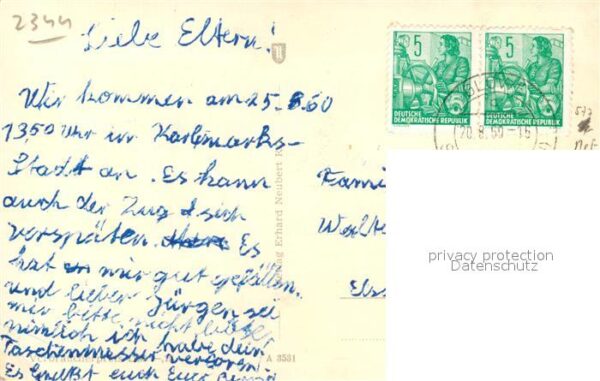 2344
Liebe Eltern!
Wir kommen am 25.8.60
13,50 Uhr in Karlmarks-
Stadt an. Es kann
auch der Zug sich
verspäten. Es
hat mir gut gefallen.
und lieber Jürgen sei
mir bitte nicht böse
nämlich ich habe dein
Taschenmesser verloren
Es grüßt euch Euer
5
DEUTSCHE
DEMOKRATISCHE REPUBLIK
5
DEUTSCHE
DEMOKRATISCHE REPUBLIK
20.8.60-16
Verlag Erhard Neubert
A 3531
Fami
Elss
privacy protection
Datenschutz